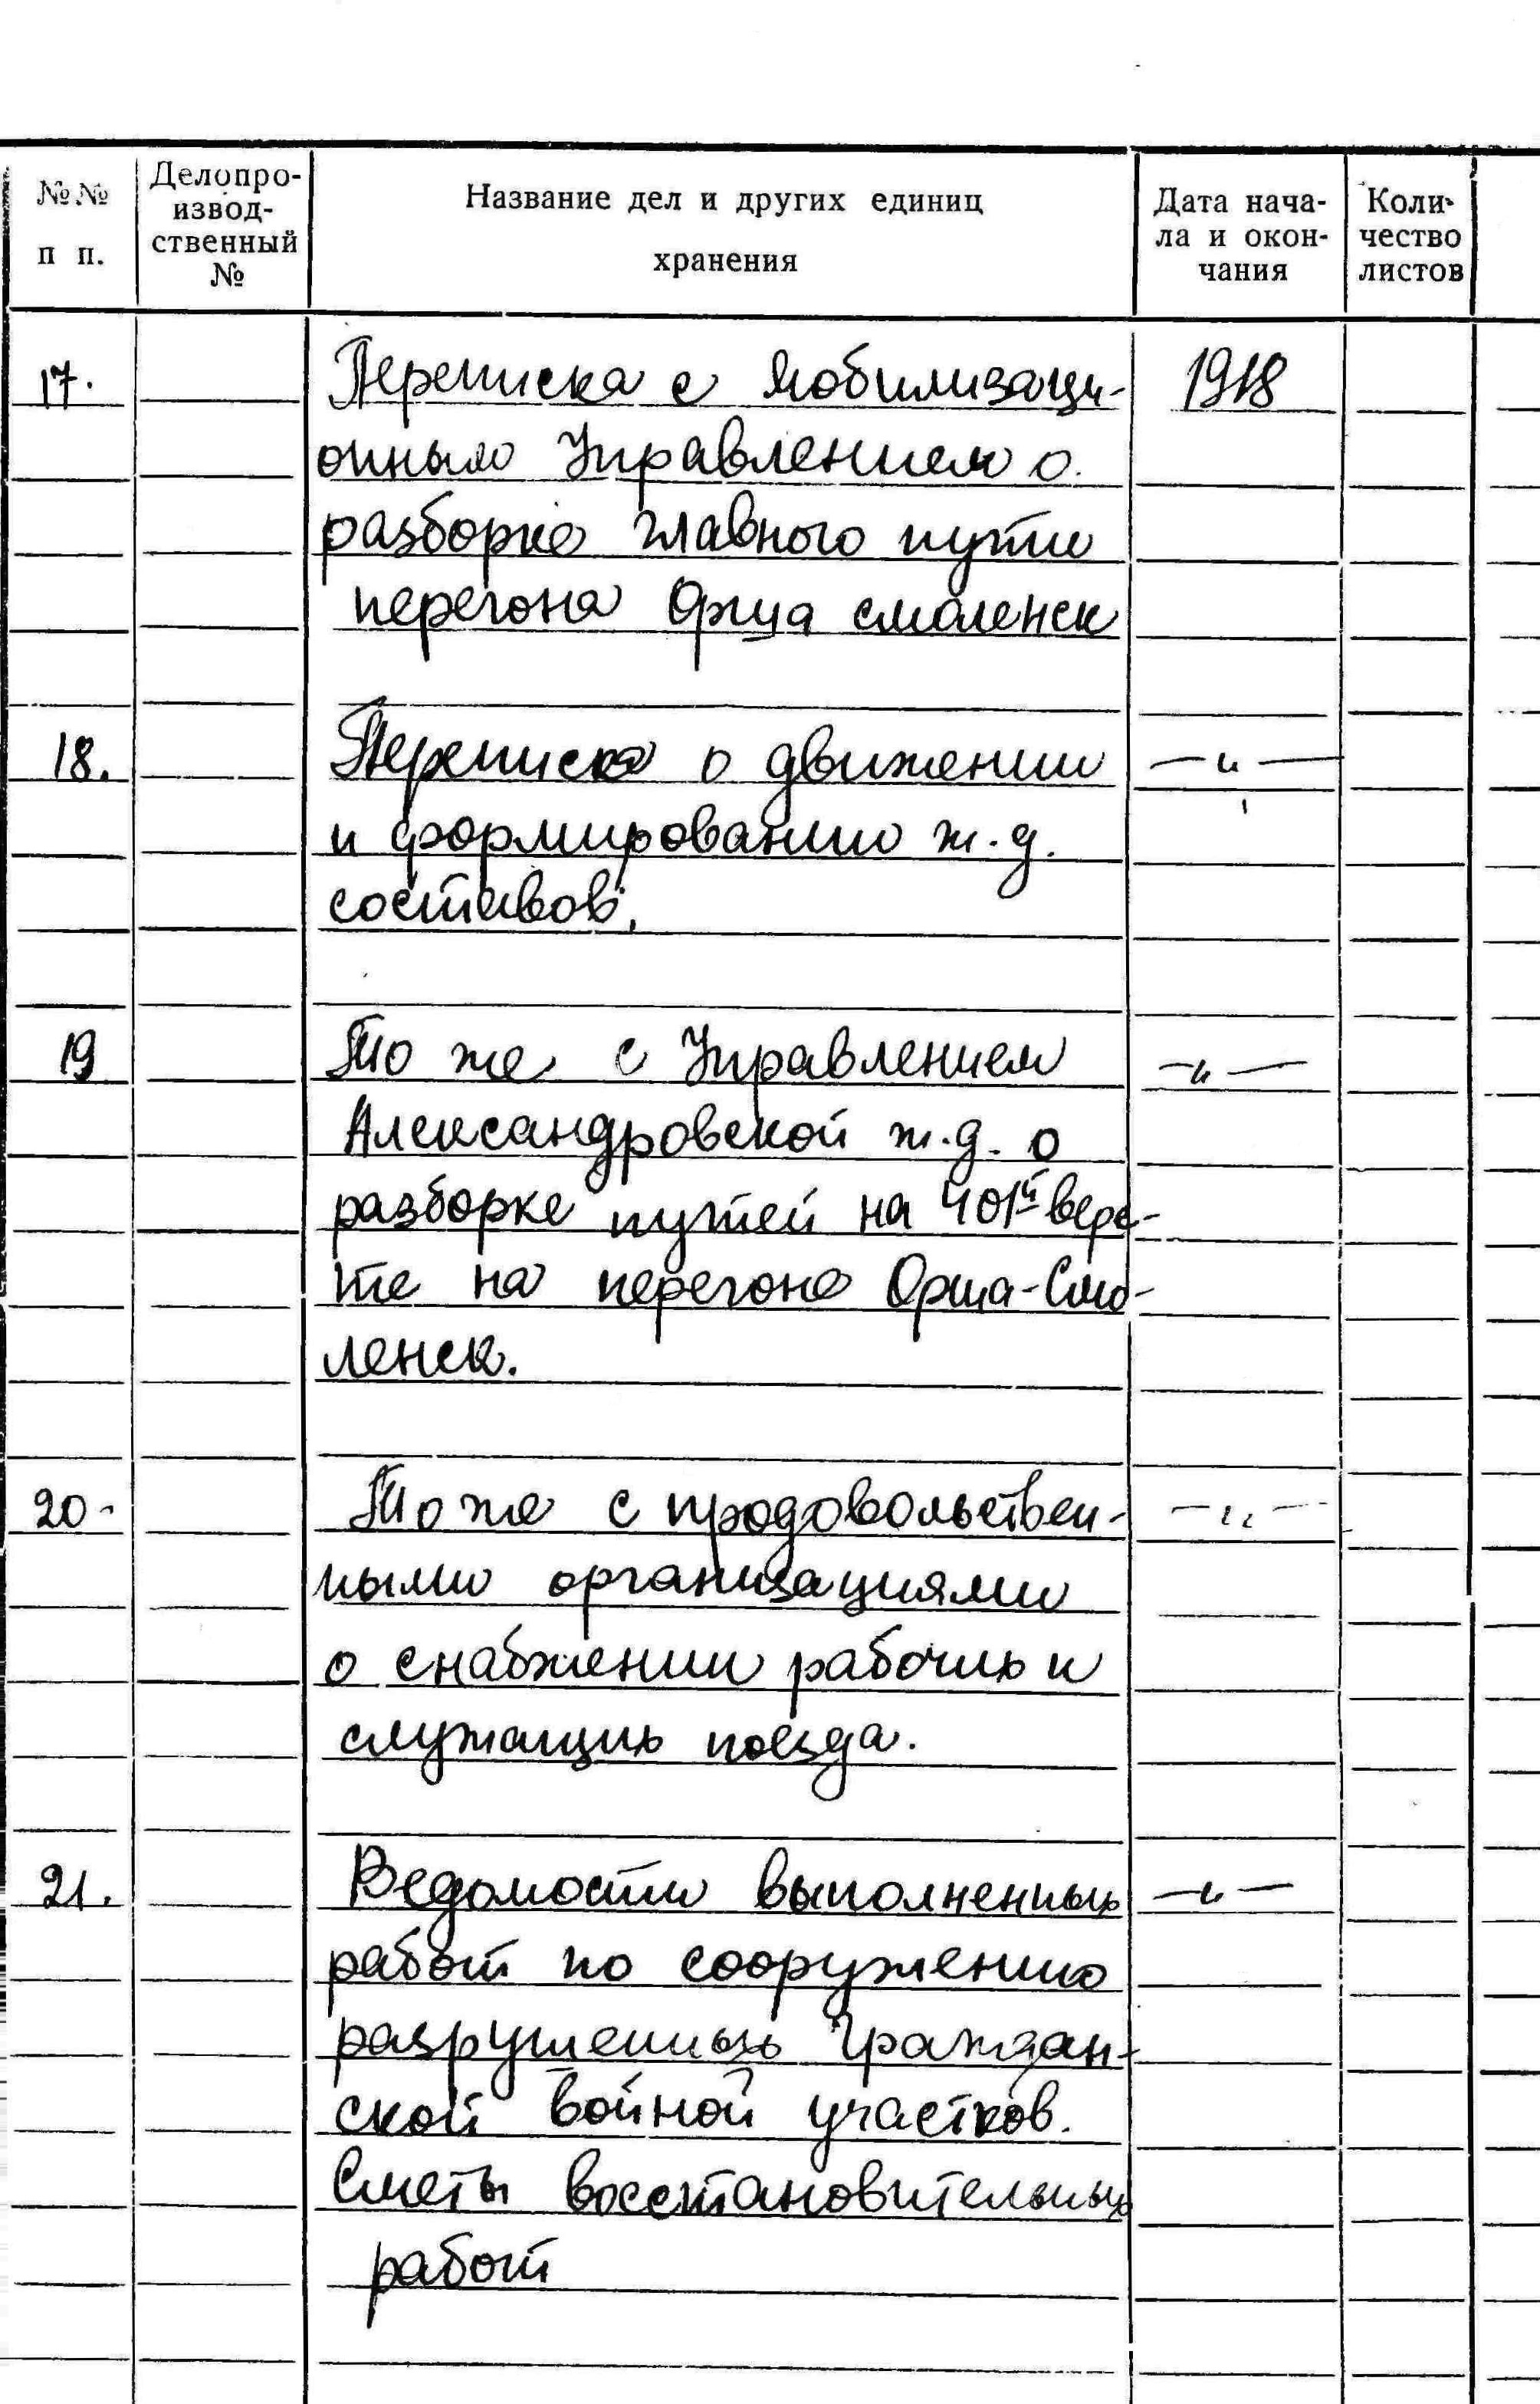 №№ п п.
Делопро-
извод-
ственный
№
Название дел и других единиц
хранения
Дата нача-
ла и окон-
чания
Коли-
чество
листов
17. Переписка с мобилизаци- 1918
онным Управлением о
разборке главного пути
перегона Орша Смоленск
18. Переписка о движении —"—
и формировании ж.д.
составов.
19 То же с Управлением —"—
Александровской ж.д. о
разборке путей на 401й верс-
те на перегоне Орша-Смо-
ленск.
20. То же с продовольствен- —"—
ными организациями
о снабжении рабочих и
служащих поезда.
21. Ведомости выполненных —"—
работ по сооружению
разрушенных граждан-
ской войной участков.
Сметы восстановительных
работ